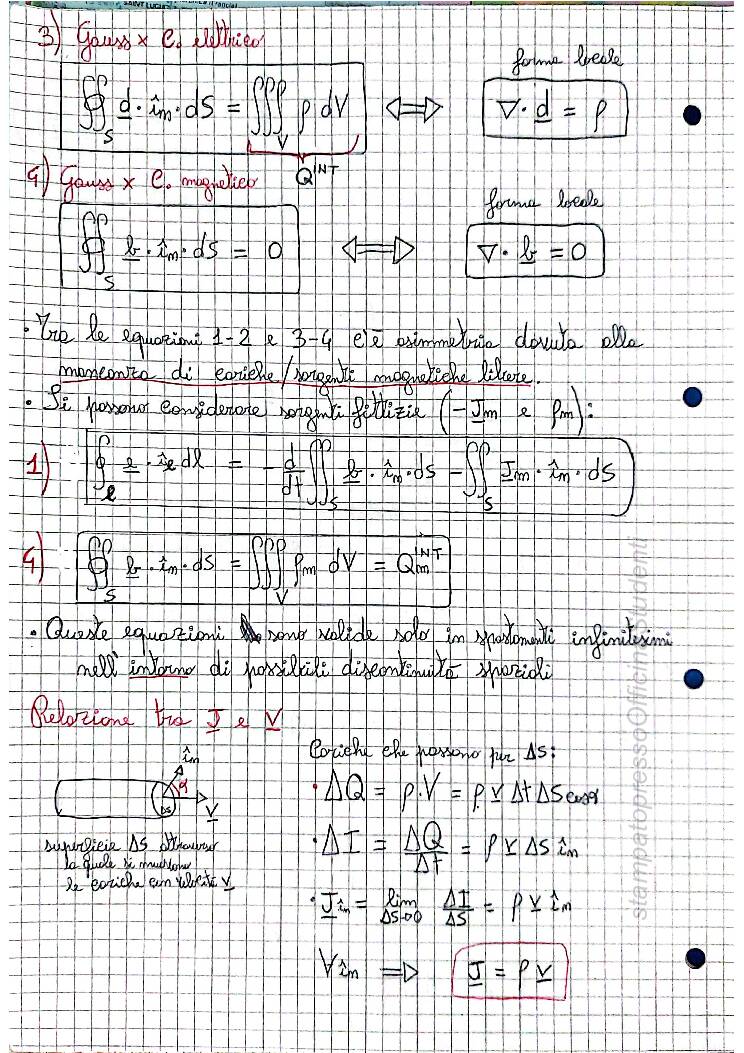 3) Gauss x C. elettrico
forma locale
∯_S d · î_n · dS = ∭_V ρ dV ⟺ ∇ · d = ρ
Q^INT
4) Gauss x C. magnetico
forma locale
∯_S b · î_n · dS = 0 ⟺ ∇ · b = 0
· Tra le equazioni 1-2 e 3-4 c'è asimmetria dovuta alla
mancanza di cariche/sorgenti magnetiche libere.
· Si possono considerare sorgenti fittizie (-J_m e ρ_m):
1) ∮_l e · î_e dl = - d/dt ∬_S b · î_n · dS - ∬_S J_m · î_n · dS
4) ∯_S b · î_n · dS = ∭_V ρ_m dV = Q_m^INT
· Queste equazioni sono valide solo in spostamenti infinitesimi
nell'intorno di possibili discontinuità spaziali
Relazione tra J e V
î_n
α
ΔS
V
superficie ΔS attraverso
la quale si muovono
le cariche con velocità V
Cariche che passono per ΔS:
· ΔQ = ρ · V = ρ v Δt ΔS cosα
· ΔI = ΔQ/Δt = ρ v ΔS î_n
· J î_n = lim_ΔS→0 ΔI/ΔS = ρ v î_n
∀ î_n ⟹ J = ρ v
stampatopressoOfficinaStudenti